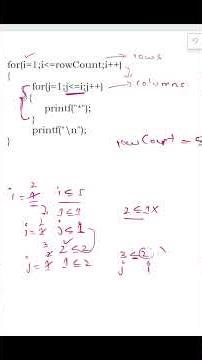 for(i=1;i<=rowCount;i++) → rows
{
for(j=1;j<=i;j++) → columns
{
printf("*");
}
printf("\n");
}
rowCount = 5
2
i = 1 i ≤ 5
2, 1 ≤ 1 2 ≤ 1X
j = 1 j ≤ 1
3 2 ≤ 2
j = 1 1 ≤ 2 3 ≤ 2
j i